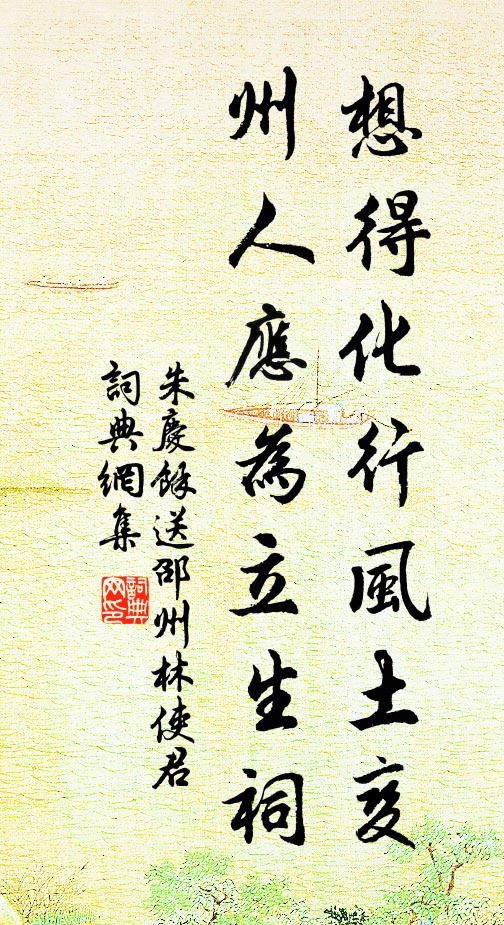 想得化行風土变
州人應為立生祠
朱慶餘送邵州林使君
詞典網集
詞典網印